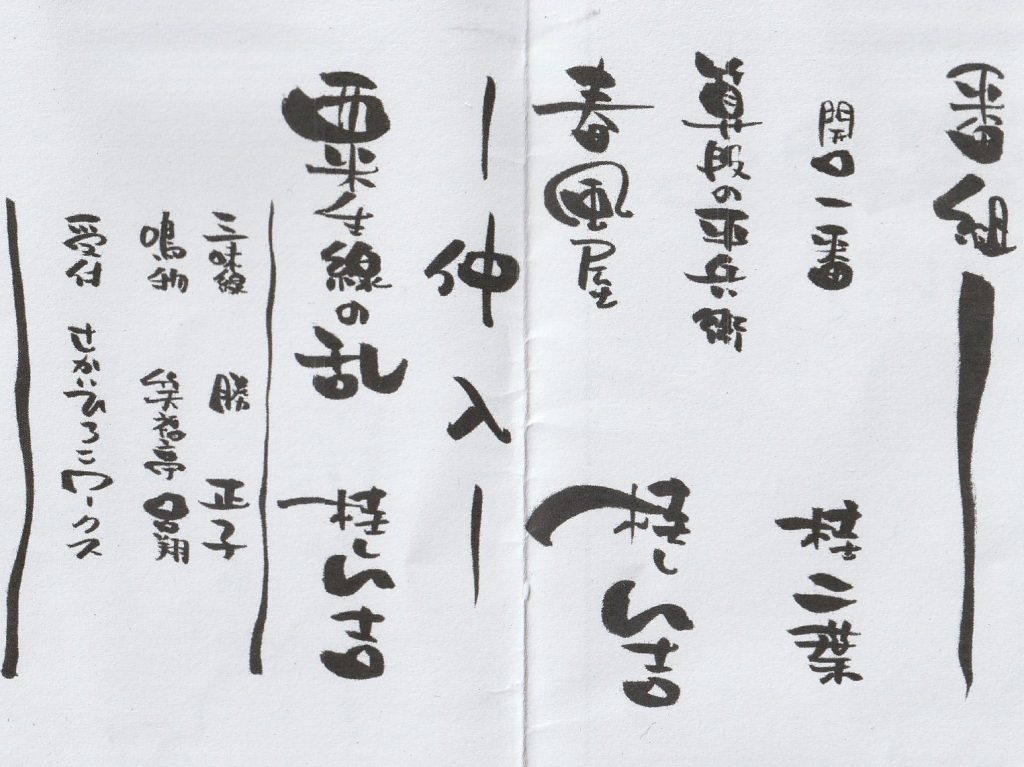 番組
開口一番 桂二葉
算段の平兵衛
春風屋 桂しん吉
―仲入―
粟生線の乱 桂しん吉
三味線 勝 正子
鳴物 笑福亭呂翔
受付 さかいひろこワークス